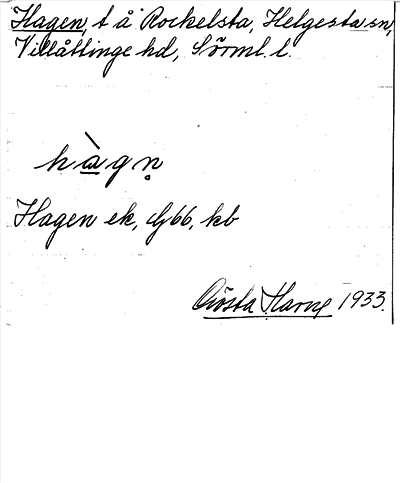 Hagen, t å Rockelsta, Helgesta sn,
Villåttinge hd, Sörml. l.
hàgn̥
Hagen ek, G66, kb
Gösta Harne 1933.